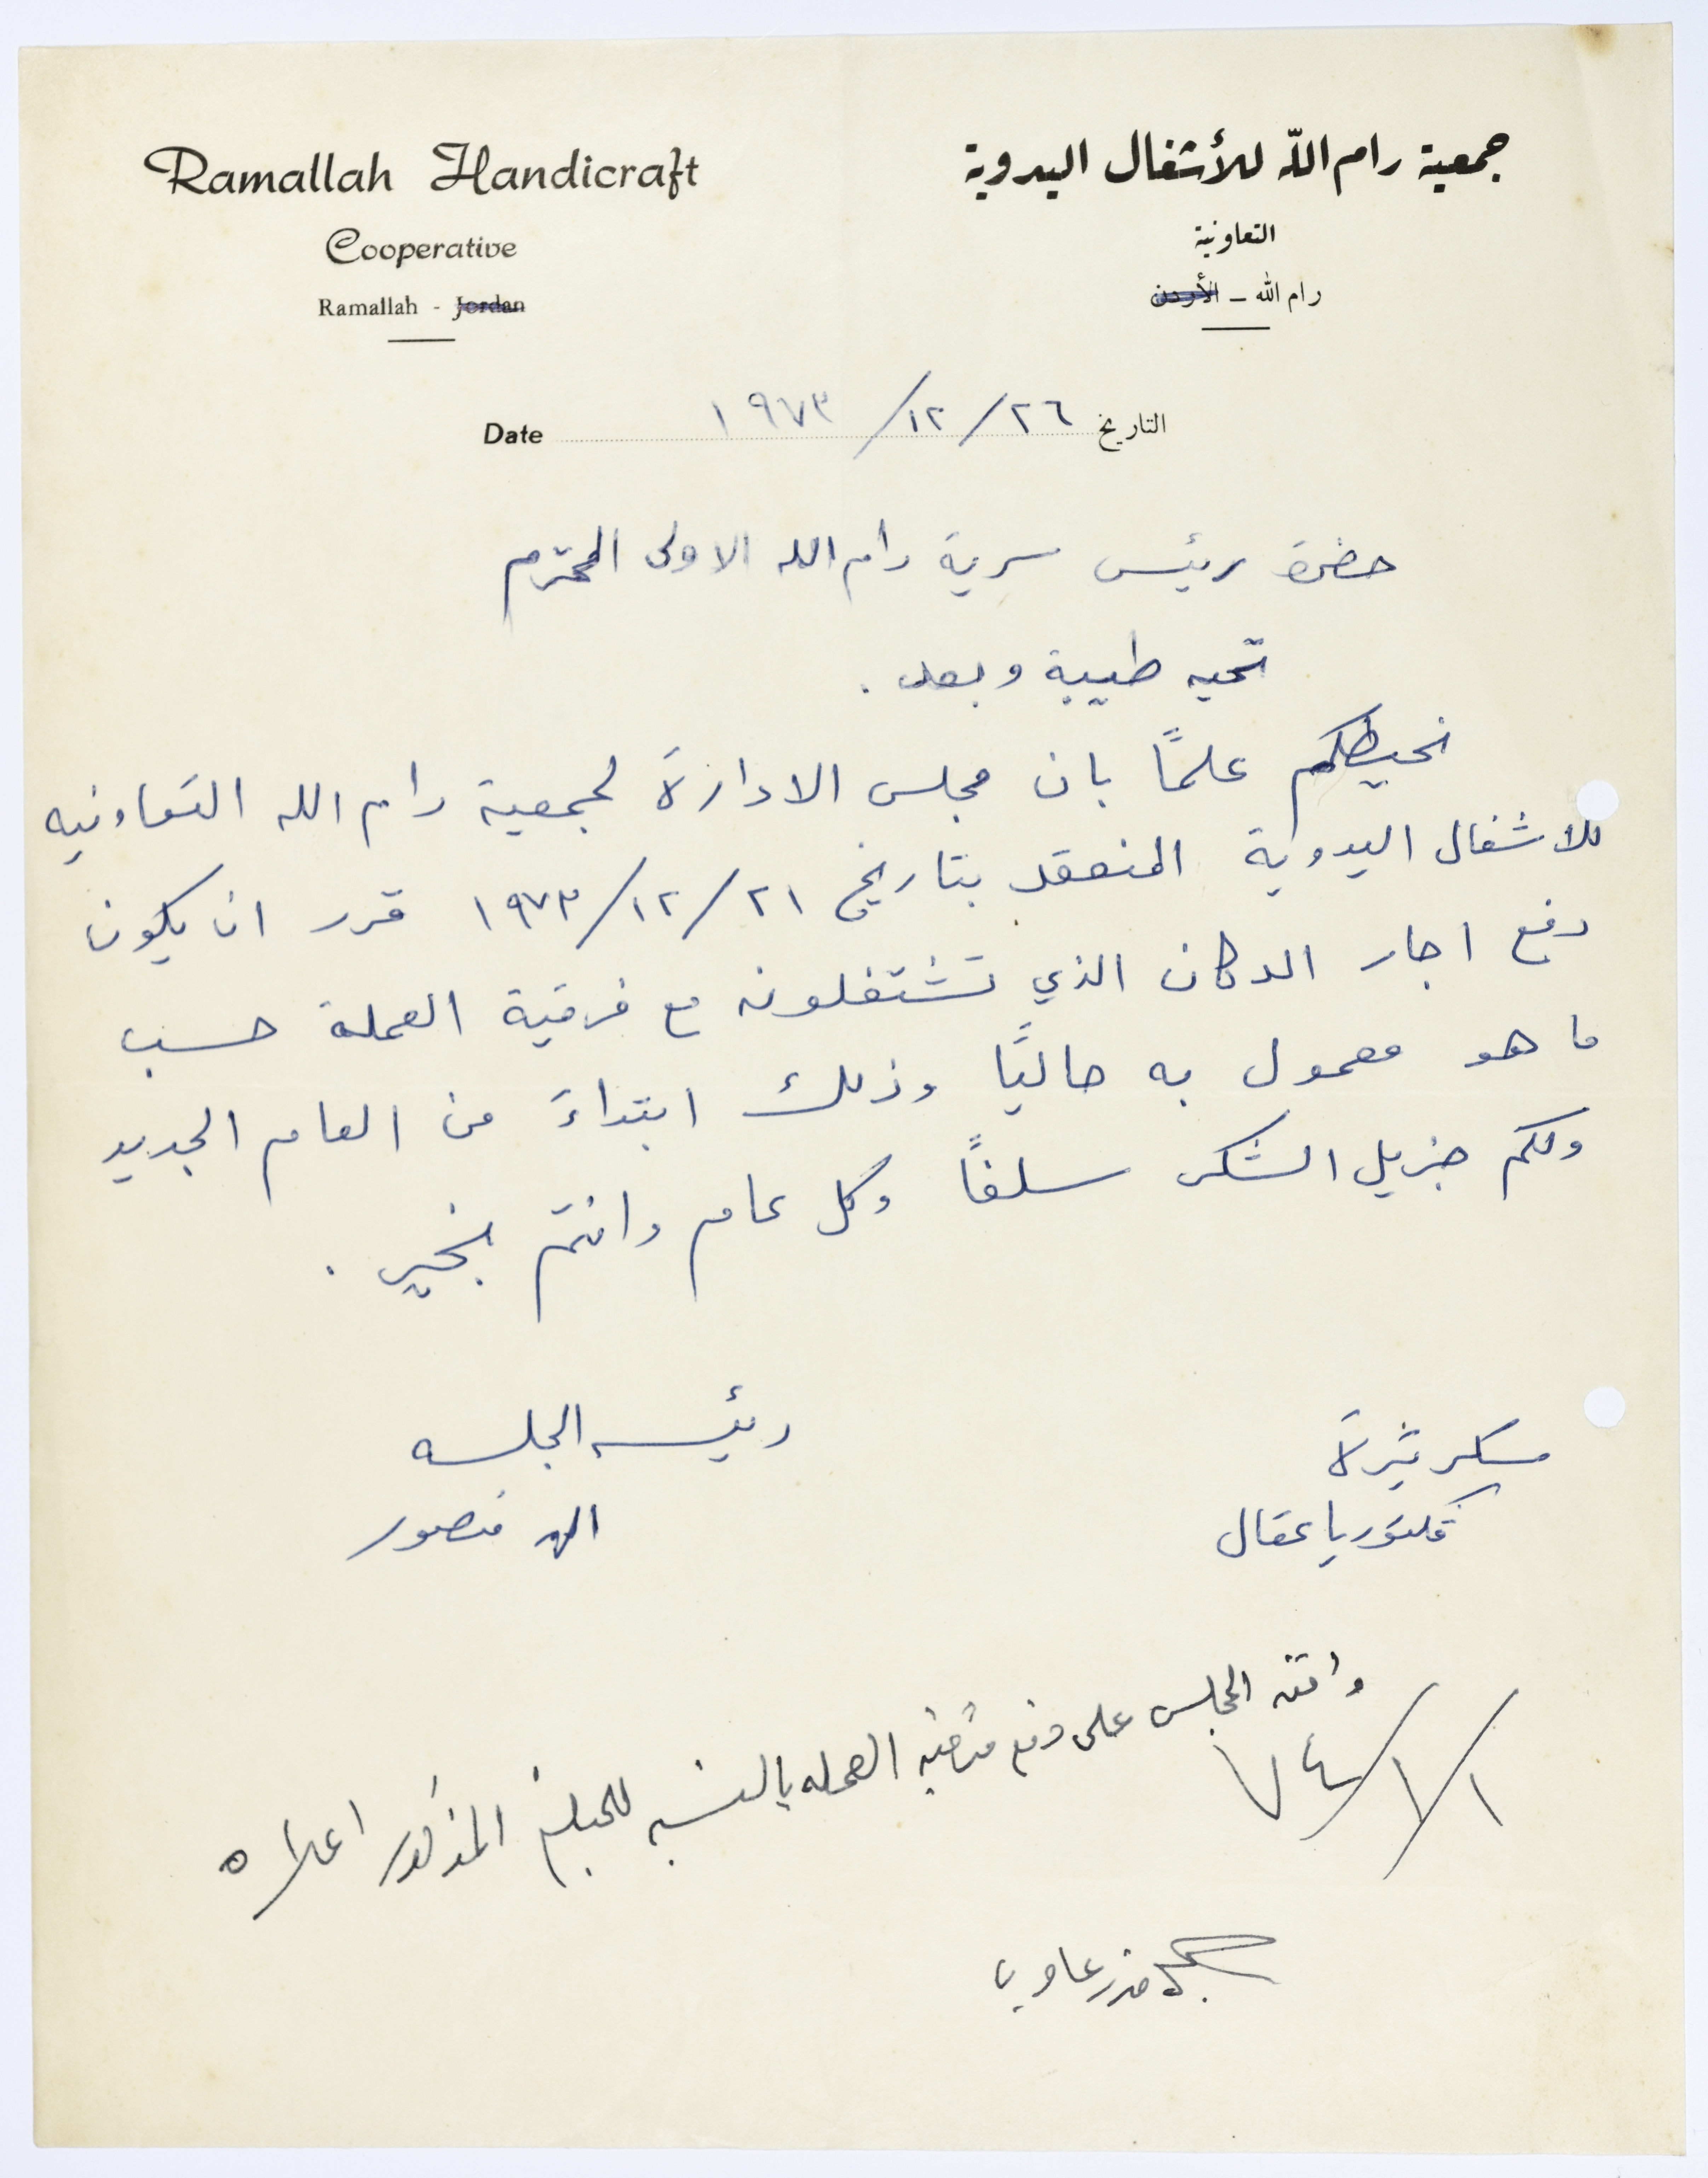 Ramallah Handicraft
Cooperative
Ramallah - Jordan
جمعية رام الله للأشغال اليدوية
التعاونية
رام الله - الأردن
Date ١٩٧٣/١٢/٢٦ التاريخ
حضرة رئيس سرية رام الله الاولى المحترم
تحيه طيبة وبعد.
نحيطكم علمًا بان مجلس الادارة لجمعية رام الله التعاونيه
للاشغال اليدوية المنعقد بتاريخ ١٩٧٣/١٢/٢١ قرر ان يكون
دفع اجار الدكان الذي تشتغلونه مع فرقية العملة حسب
ما هو معمول به حاليًا وذلك ابتداءً من العام الجديد
ولكم جزيل الشكر سلفًا وكل عام وانتم بخير.
سكرتيرة
فكتوريا عقال
رئيسه الجلسه
منصور
وافق المجلس على دفع فرقية العمله بالنسبه للمبلغ المذكور اعلاه
٧٤/١/١